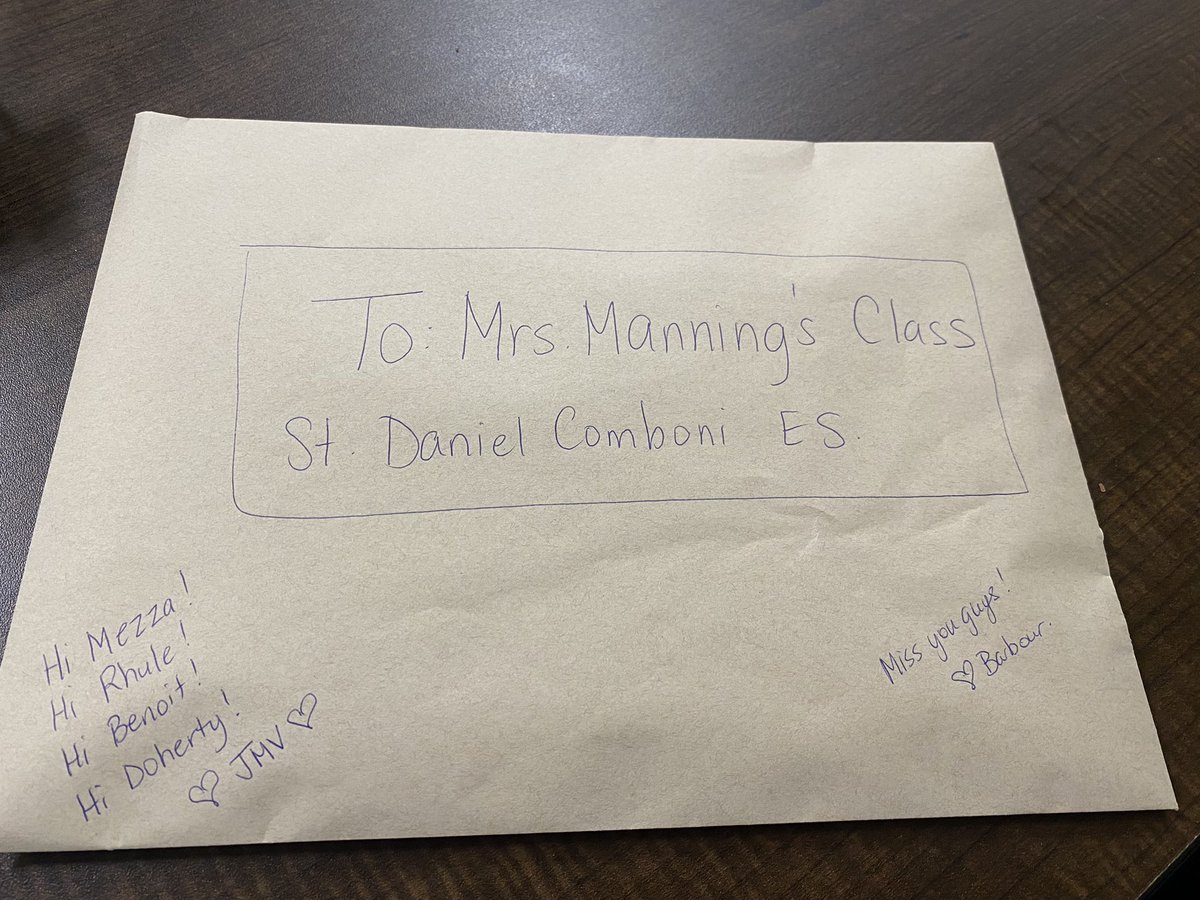 To: Mrs. Manning's Class
St. Daniel Comboni ES.
Hi Mezza!
Hi Rhule!
Hi Benoit!
Hi Doherty!
♡ JMV ♡
Miss you guys!
♡ Barbour.